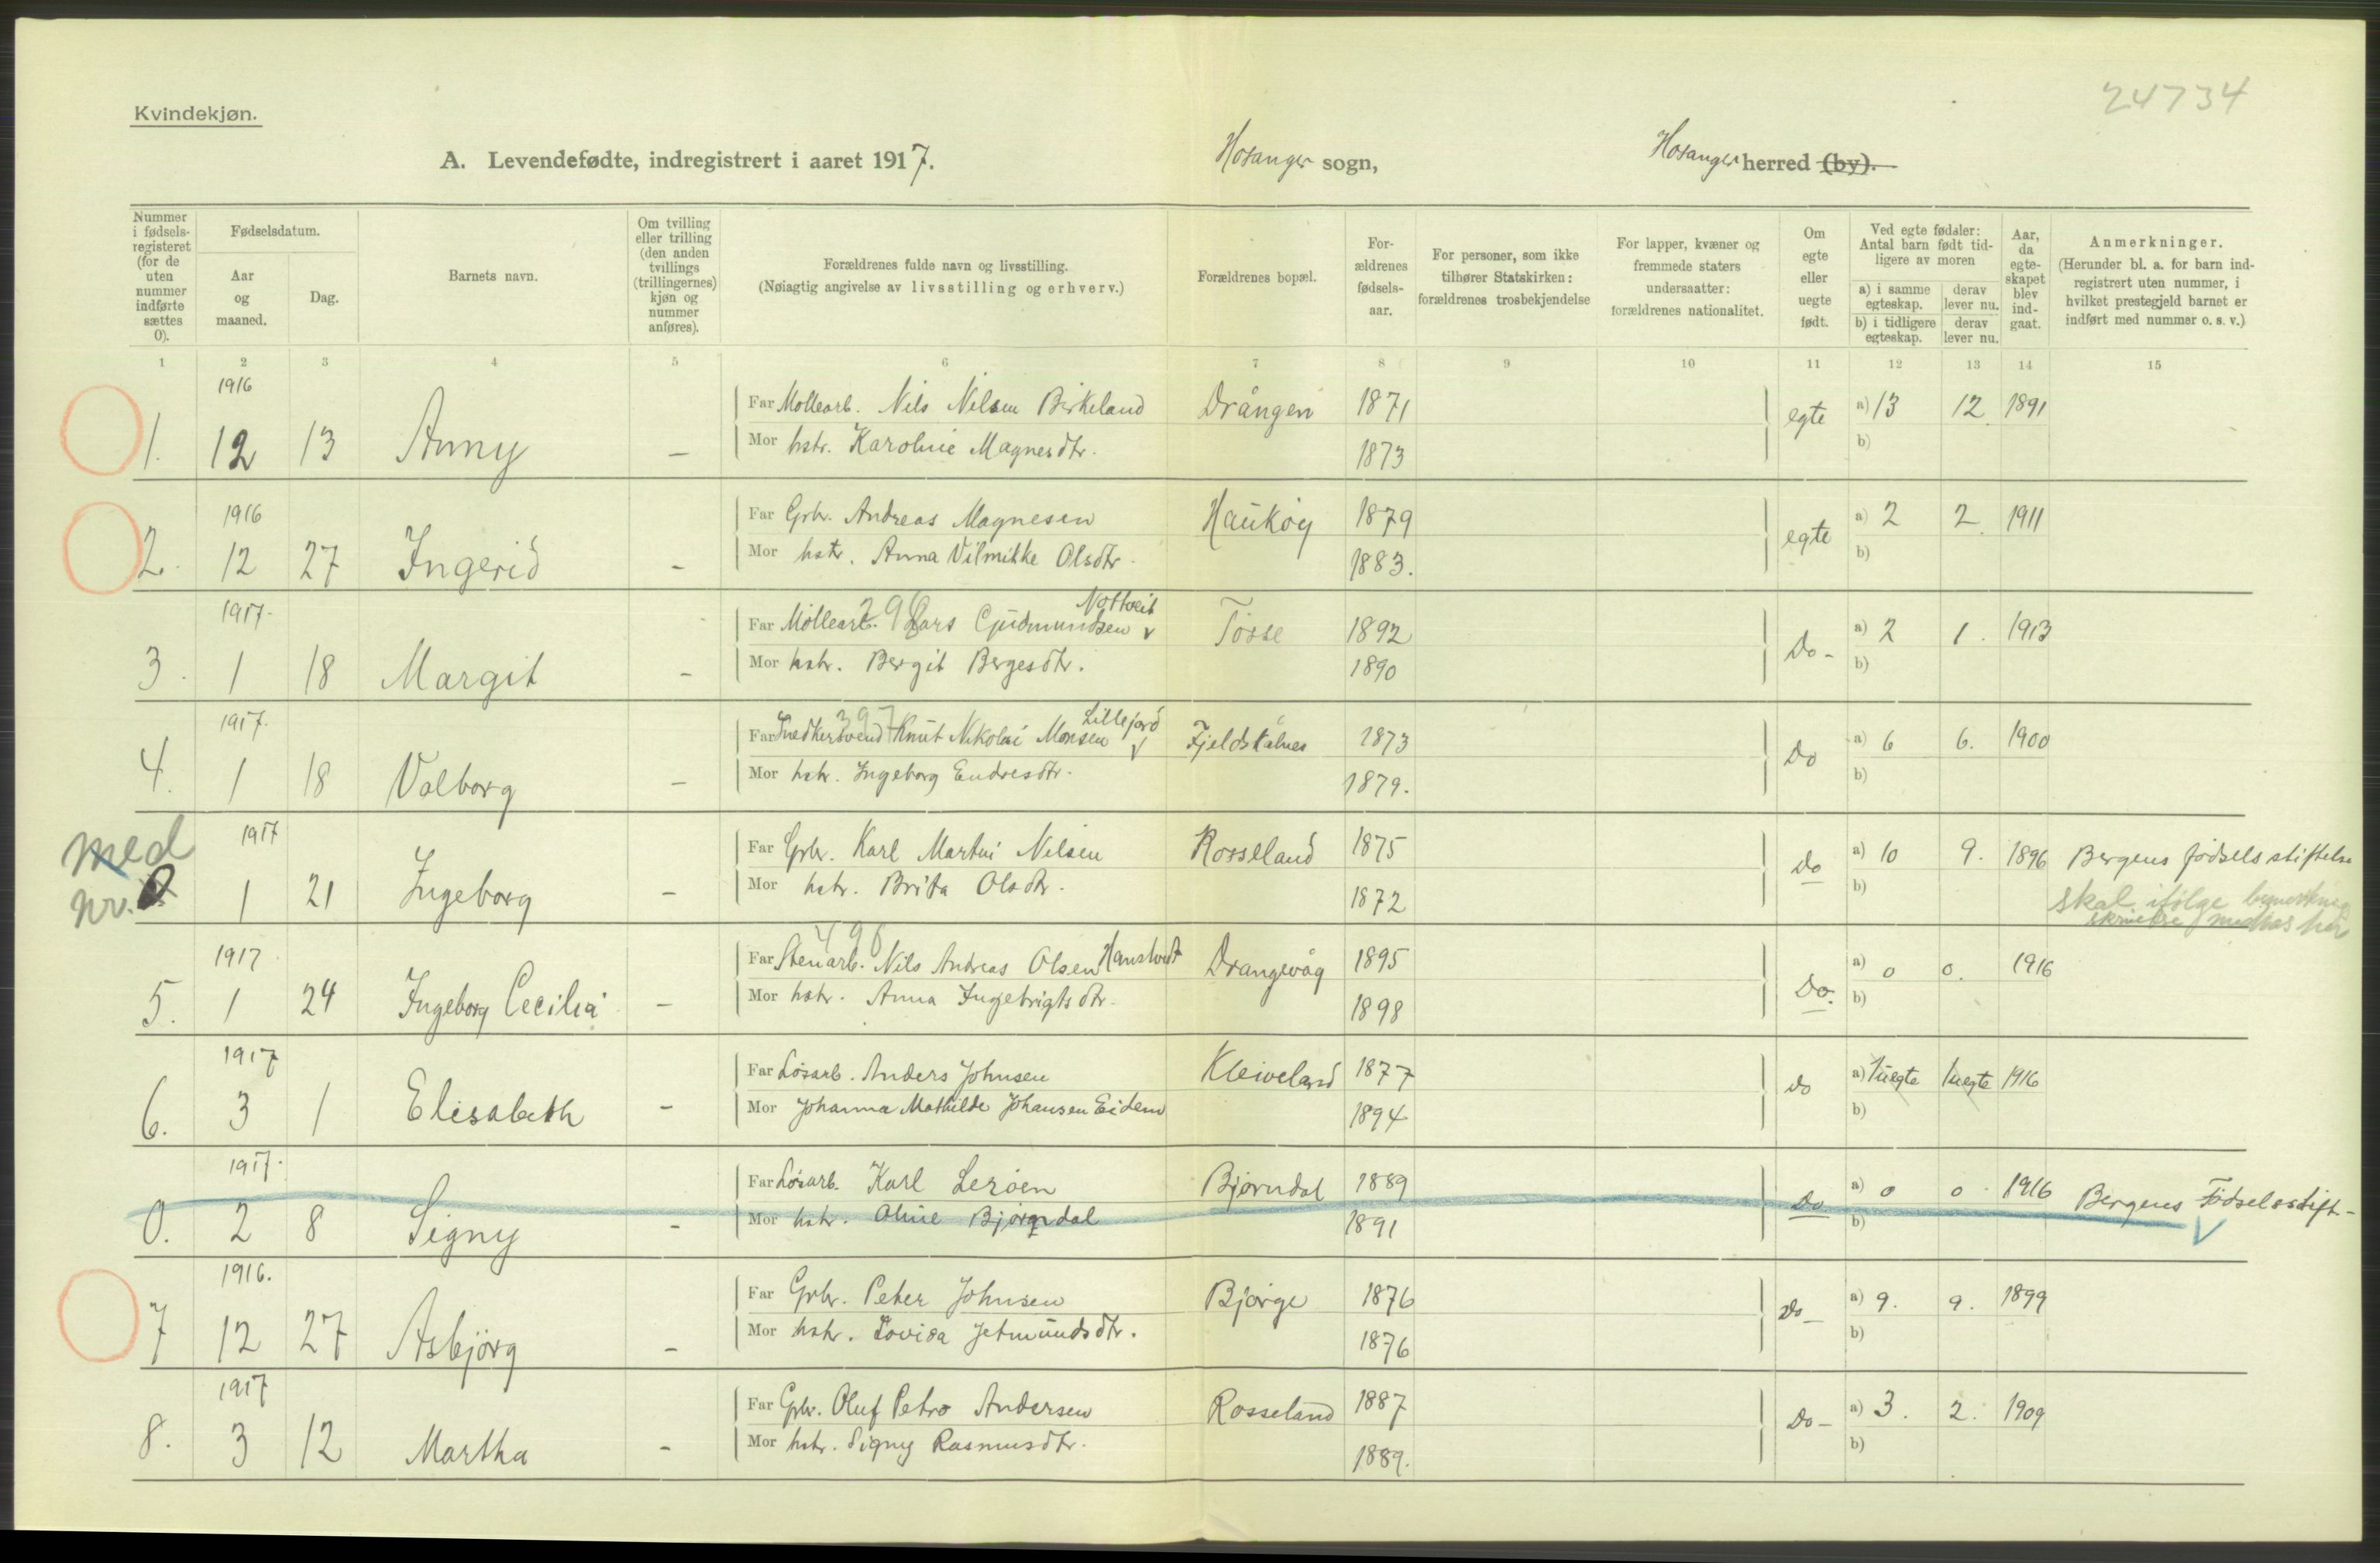 24734
Kvindekjøn.
A. Levendefødte, indregistrert i aaret 1917.
Hosanger sogn,
Hosanger herred (by).
Nummer i fødsels-registeret (for de uten nummer indførte sættes 0).
Fødselsdatum.
Aar og maaned.
Dag.
Barnets navn.
Om tvilling eller trilling (den anden tvillings (trillingernes) kjøn og nummer anføres).
Forældrenes fulde navn og livsstilling.
(Nøiagtig angivelse av livsstilling og erhverv.)
Forældrenes bopæl.
For-ældrenes fødsels-aar.
For personer, som ikke tilhører Statskirken: forældrenes trosbekjendelse
For lapper, kvæner og fremmede staters undersaatter: forældrenes nationalitet.
Om egte eller uegte født.
Ved egte fødsler: Antal barn født tid-ligere av moren
a) i samme egteskap.
derav lever nu.
b) i tidligere egteskap.
derav lever nu.
Aar, da egte-skapet blev ind-gaat.
Anmerkninger.
(Herunder bl. a. for barn ind-registrert uten nummer, i hvilket prestegjeld barnet er indført med nummer o. s. v.)
1 2 3 4 5 6 7 8 9 10 11 12 13 14 15
1916
Far Mollearb. Nils Nilsen Birkeland Drången 1871 egte a) 13 12 1891
1. 12 13 Anny – Mor hstr. Karoline Magnesdtr. 1873 b)
1916
Far Grbr. Andreas Magnesen Haukøy 1879 egte a) 2 2 1911
2. 12 27 Ingerid – Mor hstr. Anna Vilmikke Olsdtr. 1883. b)
1917
Far Mollearb. Lars Gudmundsen Nottveit v Tosse 1892 Do – a) 2 1. 1913
3. 1 18 Margit – Mor hstr. Bergit Bergesdtr. 1890 b)
1917.
397
Far Snedkersvend Knut Nikolai Monsen Lillejord v Fjeldskålnes 1873 Do a) 6 6. 1900
4. 1 18 Valborg – Mor hstr. Ingeborg Endresdtr. 1879. b)
med
nr. 0
1917
Far Grbr. Karl Martin Nilsen Rosseland 1875 Do a) 10 9. 1896 Bergens fødselsstiftelse
1 21 Ingeborg – Mor hstr. Brita Olsdtr. 1872 b) skal ifølge
her
1917
496
Far Stenarb. Nils Andreas Olsen Hanstveit Drangevåg 1895 Do. a) 0 0. 1916
5. 1 24 Ingeborg Cecilia – Mor hstr. Anna Ingebrigtsdtr. 1898 b)
1917
Far Løsarb. Anders Johnsen Kleiveland 1877 Do a) 1uegte 1uegte 1916
6. 3 1 Elisabeth – Mor Johanna Mathilde Johansen Eidem 1894 b)
1917.
Far Løsarb. Karl Lerøen Bjørndal 1889 Do a) 0 0 1916 Bergens Fødselsstift-
0. 2 8 Signy – Mor hstr. Oline Bjørndal 1891 b)
1916.
Far Grbr. Peter Johnsen Bjørge 1876 Do – a) 9. 9. 1899
7 12 27 Asbjörg – Mor hstr. Lovisa Jetmundsdtr. 1876 b)
1917
Far Grbr. Oluf Petro Andersen Rosseland 1887 Do – a) 3. 2. 1909
8. 3 12 Martha – Mor hstr. Signy Rasmusdtr. 1889. b)